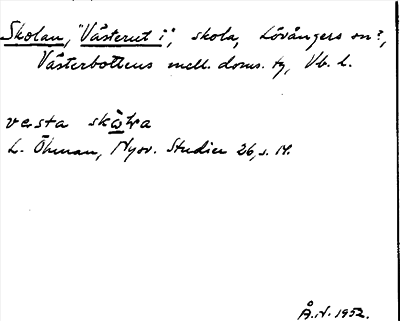 Skolan, "Västerut i", skola, Lövångers sn?,
Västerbottens mell. doms. tg, Vb. l.
vesta
L. Öhman, Nysv. Studier 26, s. 14.
Å.N. 1952.